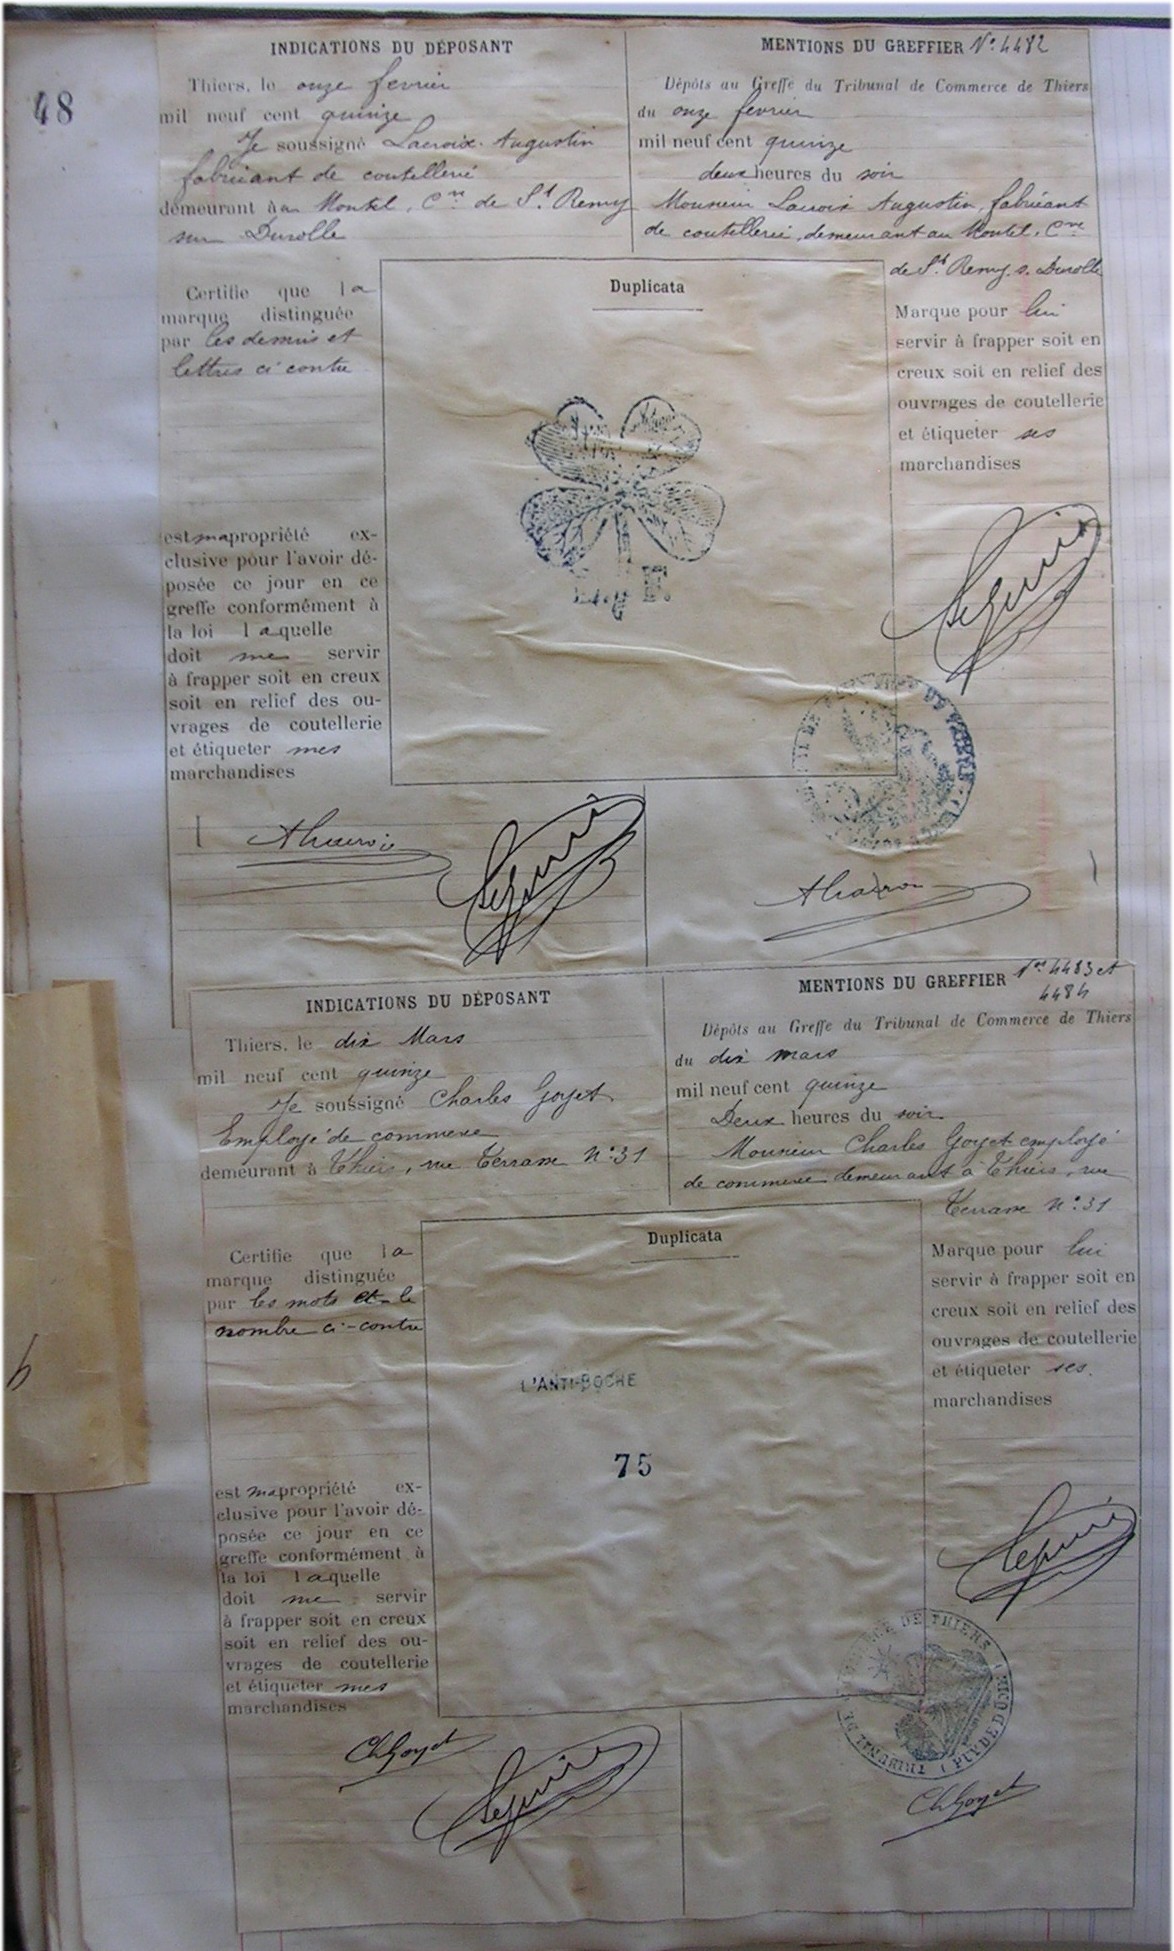 48
INDICATIONS DU DÉPOSANT
Thiers, le onze fevrier
mil neuf cent quinze
Je soussigné Lacroix Augustin
fabricant de coutellerie
demeurant à au Montel, Cne de St Remy
sur Durolle
Certifie que la
marque distinguée
par les dessins et
lettres ci contre
est ma propriété ex-
clusive pour l'avoir dé-
posée ce jour en ce
greffe conformément à
la loi laquelle
doit me servir
à frapper soit en creux
soit en relief des ou-
vrages de coutellerie
et étiqueter mes
marchandises
Duplicata
MENTIONS DU GREFFIER No 4482
Dépôts au Greffe du Tribunal de Commerce de Thiers
du onze fevrier
mil neuf cent quinze
deux heures du soir
Monsieur Lacroix Augustin, fabricant
de coutellerie, demeurant au Montel, Cne
de St Remy s. Durolle
Marque pour lui
servir à frapper soit en
creux soit en relief des
ouvrages de coutellerie
et étiqueter ses
marchandises
INDICATIONS DU DÉPOSANT
Thiers, le dix Mars
mil neuf cent quinze
Je soussigné Charles Goyet
Employé de commerce
demeurant à Thiers, rue Terrasse No 31
Certifie que la
marque distinguée
par les mots et le
nombre ci-contre
est ma propriété ex-
clusive pour l'avoir dé-
posée ce jour en ce
greffe conformément à
la loi laquelle
doit me servir
à frapper soit en creux
soit en relief des ou-
vrages de coutellerie
et étiqueter mes
marchandises
Ch Goyet
Duplicata
L'ANTI-BOCHE
75
MENTIONS DU GREFFIER Nos 4483 et
4484
Dépôts au Greffe du Tribunal de Commerce de Thiers
du dix mars
mil neuf cent quinze
Deux heures du soir
Monsieur Charles Goyet employé
de commerce demeurant à Thiers, rue
Terrasse No 31
Marque pour lui
servir à frapper soit en
creux soit en relief des
ouvrages de coutellerie
et étiqueter ses
marchandises
TRIBUNAL DE COMMERCE DE THIERS (PUY DE DÔME)
Ch Goyet